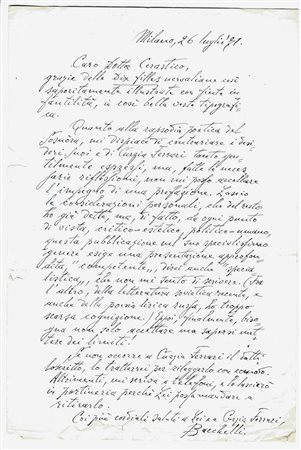 Milano, 26 luglio '71.
Caro Dotto Cerastico,
grazie delle Dix filles versaliane così
saporitamente illustrate con finta in-
fantilità, in così bella veste tipografi-
ca.
Quanto alla rapsodia poetica del
mi dispiace di contrariare i desi-
deri, Suoi e di Curzia Ferrari tanto gen-
tilmente espressi, ma, fatte le neces-
sarie riflessioni, non mi posso accollare
l'impegno di una prefazione. Lascio
le considerazioni personali, che del resto
ho già dette, ma, di fatto, da ogni punto
di vista, critico-estetico, politico-umano,
questa pubblicazione nel suo specialissimo
genere esige una presentazione approfon-
dita, "competente", direi anche "specia-
listica", che non mi sento di scrivere. (Tra
l'altro, della letteratura sovietica recente, e
anche della poesia lirica russa, ho troppo
scarsa cognizione.) Eppoi, finalmente, biso-
gna non solo accettare ma sapersi met-
tere dei limiti!
Se non occorre a Curzia Ferrari il datti-
loscritto, lo tratterrei per rileggerlo con
Altrimenti, mi scriva o telefoni, e lo lascerò
in portineria perché Lei possa mandare a
ritirarlo.
Coi più cordiali saluti a Lei e a Curzia Ferrari,
Bacchelli.